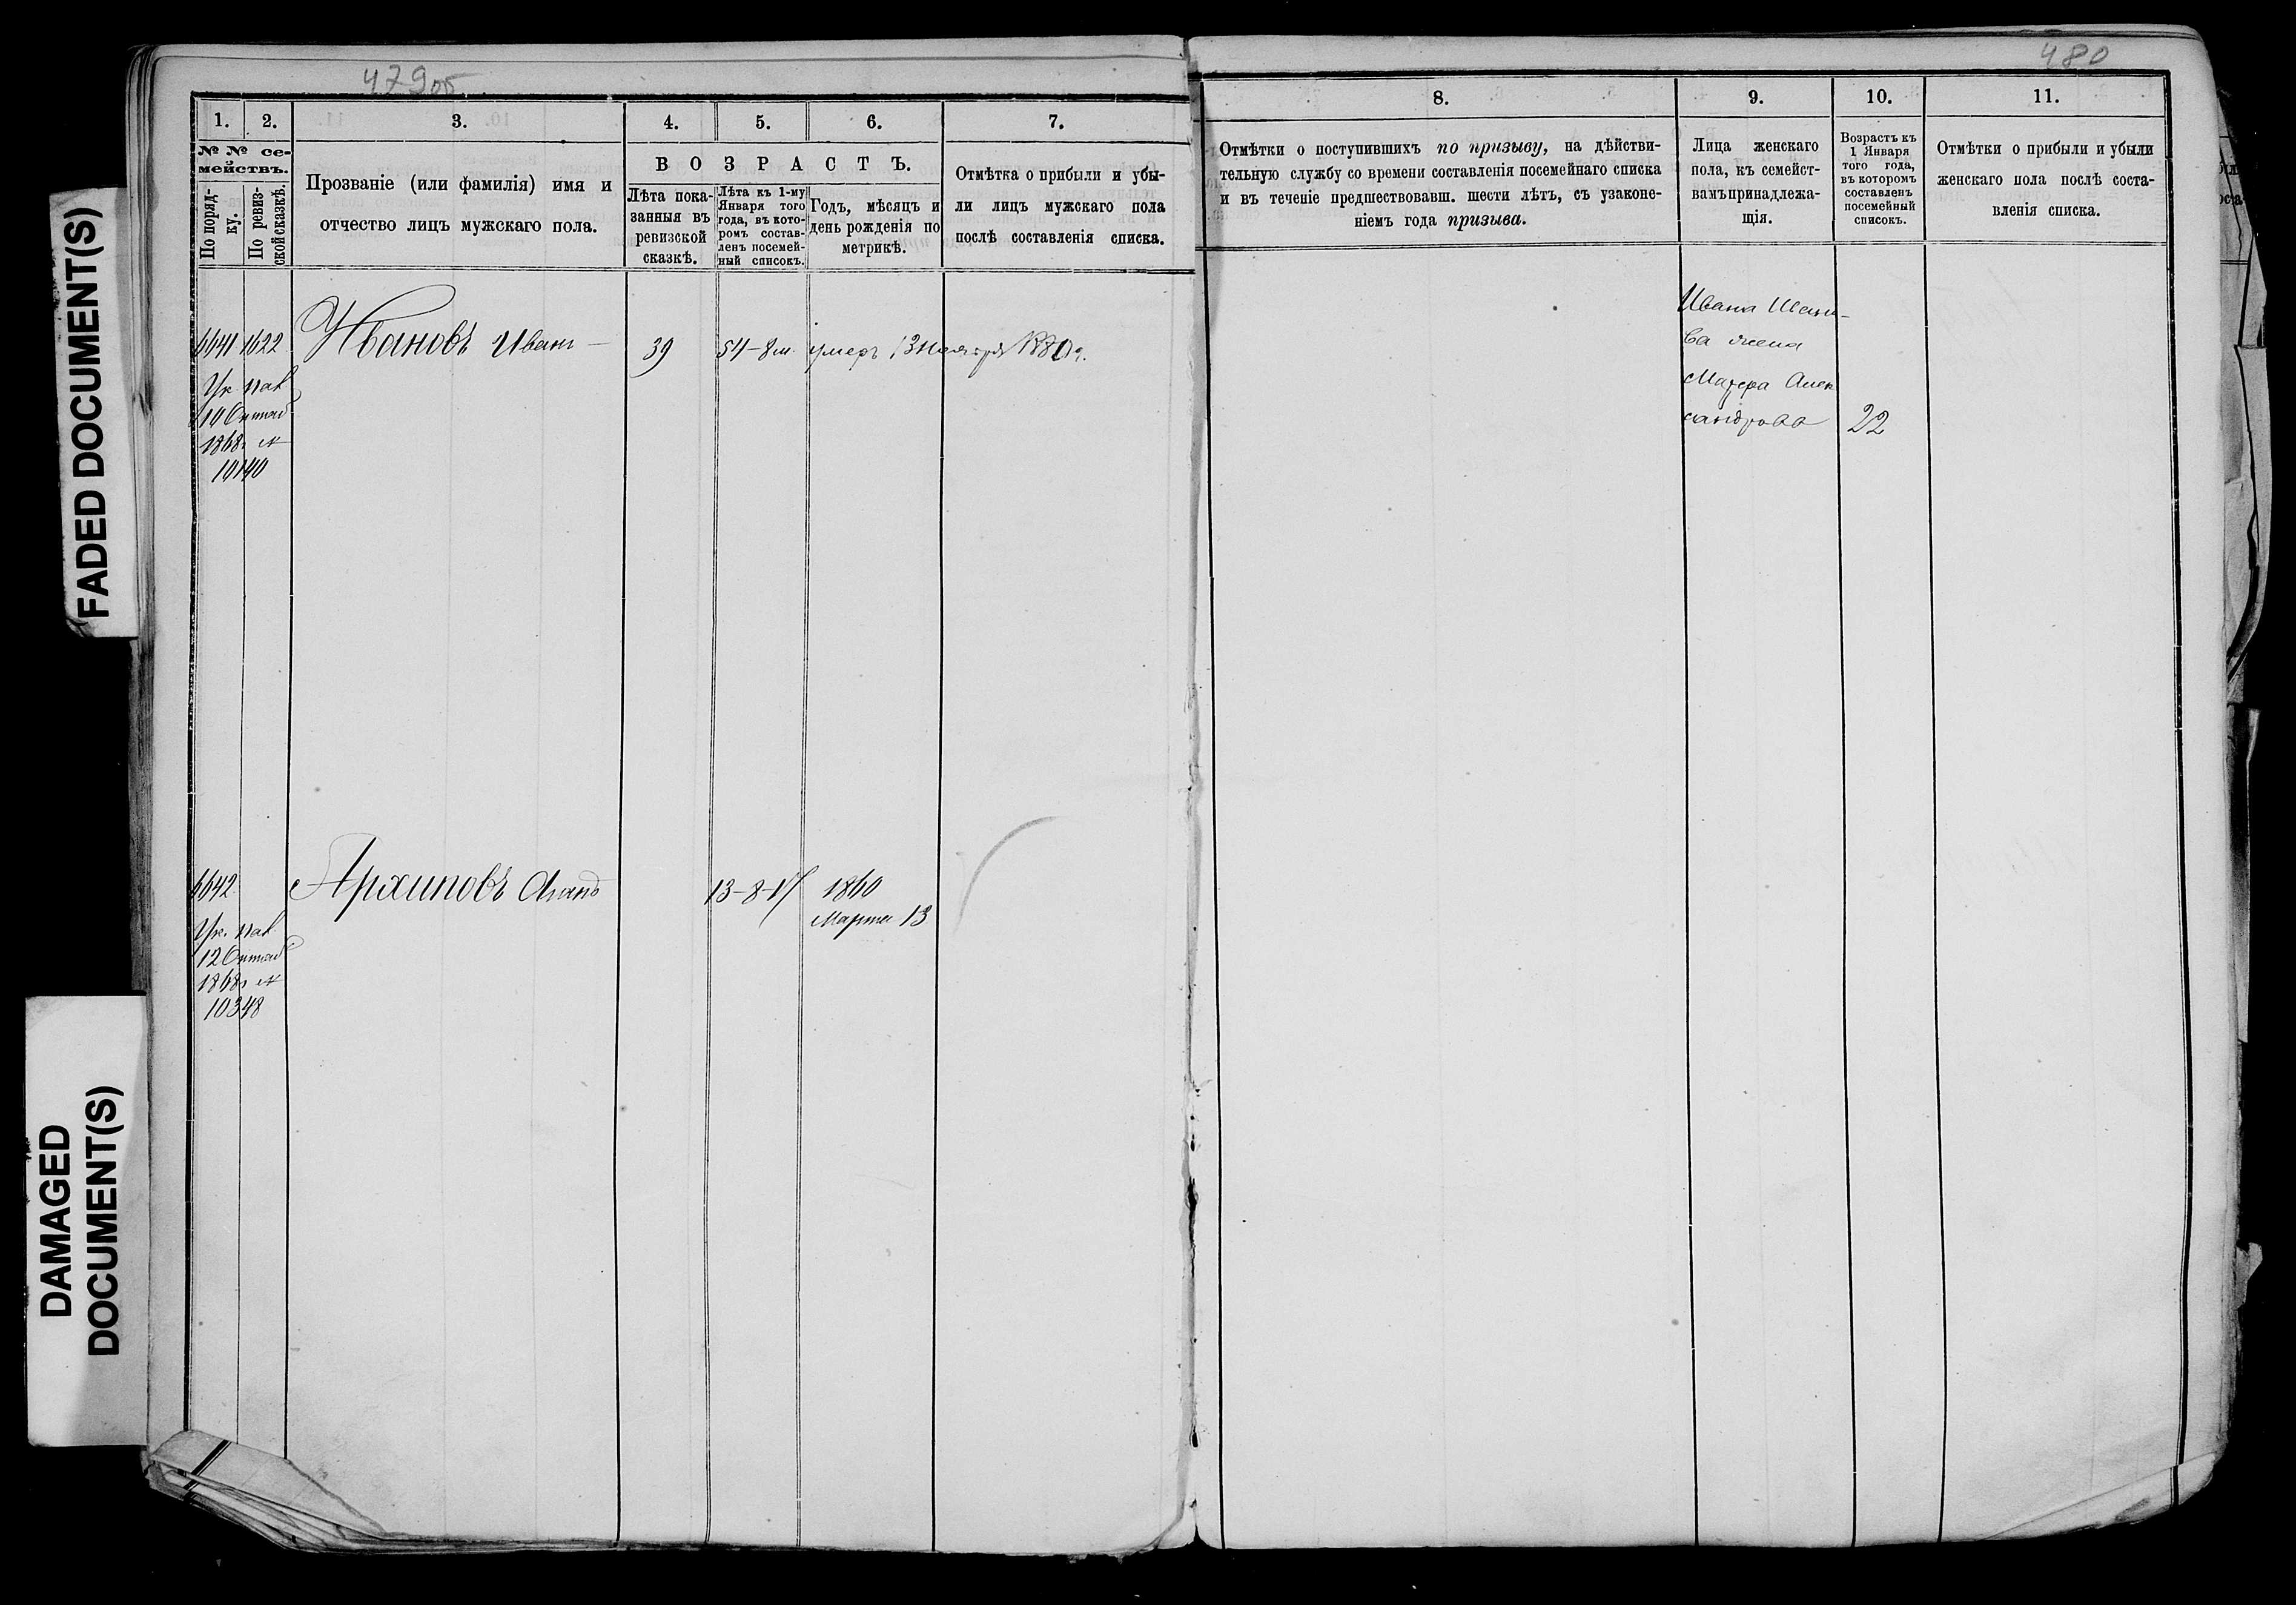 FADED DOCUMENT(S)
DAMAGED
DOCUMENT(S)
479об
1.
2.
3.
4.
5.
6.
7.
№ № се-
мействъ.
По поряд-
ку.
По ревиз-
ской сказкѣ.
Прозваніе (или фамилія) имя и
отчество лицъ мужскаго пола.
ВОЗРАСТЪ.
Лѣта пока-
занныя въ
ревизской
сказкѣ.
Лѣта къ 1-му
Января того
года, въ кото-
ромъ состав-
ленъ посемей-
ный списокъ.
Годъ, мѣсяцъ и
день рожденія по
метрикѣ.
Отмѣтка о прибыли и убы-
ли лицъ мужскаго пола
послѣ составленія списка.
6641 1622 Ивановъ Иванъ 39 54-8м. умеръ 13 ноября 1880г.
Ук. пал
14 Октяб
1868г №
10140
6642 Архиповъ 13-8-17 1860
Марта 13
Ук. пал
12 Октяб
1868г №
10348
480
8.
9.
10.
11.
Отмѣтки о поступившихъ по призыву, на дѣйстви-
тельную службу со времени составленія посемейнаго списка
и въ теченіе предшествовавш. шести лѣтъ, съ узаконе-
ніемъ года призыва.
Лица женскаго
пола, къ семейст-
вамъ принадлежа-
щія.
Возрастъ къ
1 Января
того года,
въ которомъ
составленъ
посемейный
списокъ.
Отмѣтки о прибыли и убыли
женскаго пола послѣ соста-
вленія списка.
Ивана Ивано-
ва жена
Алек
сандрова 22